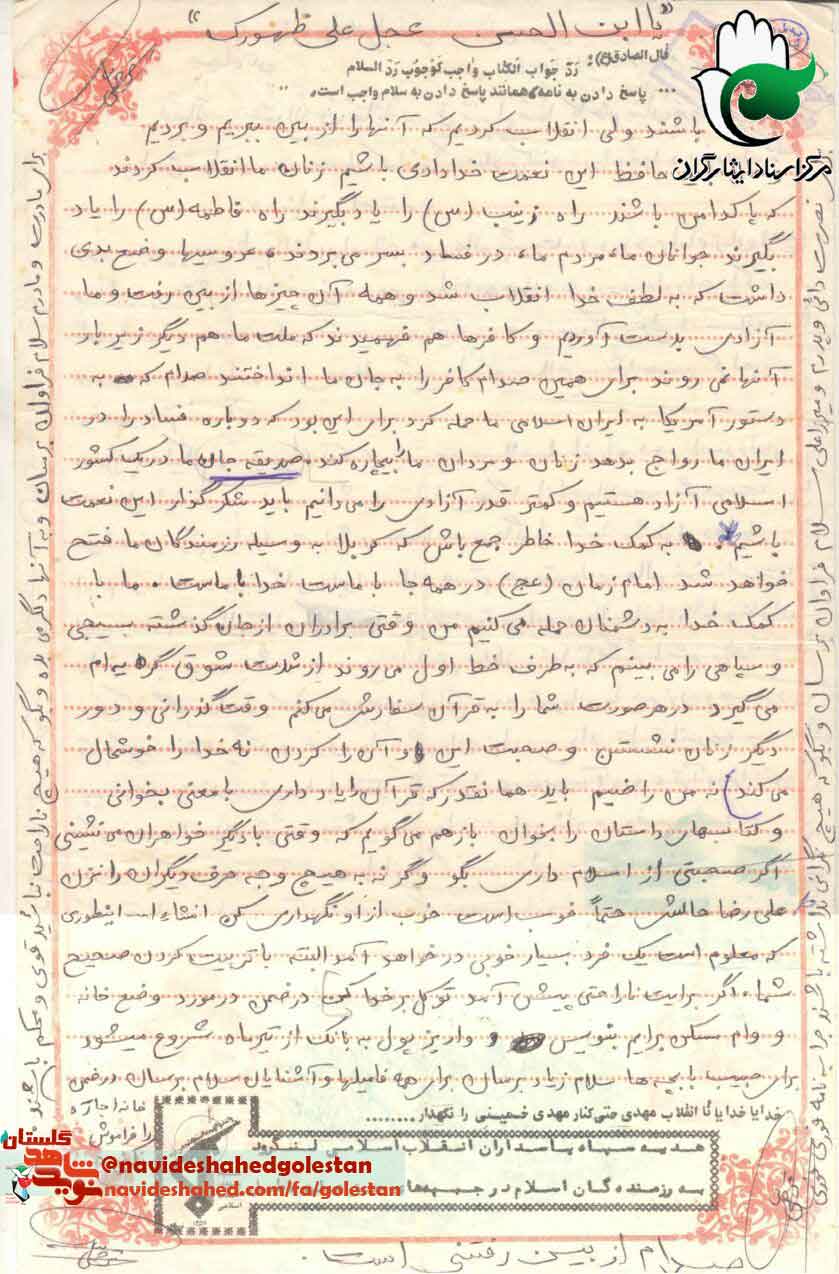 "یا ابن الحسن عجل علی ظهورک"
قال الصادق(ع): رَدّ جَواب الکِتاب واجب کَوُجُوب رَدّ السلام
... پاسخ دادن به نامه همانند پاسخ دادن به سلام واجب است.
باشند ولی انقلاب کردیم که آنها را از بین ببریم و بردیم
حافظ این نعمت خدادادی باشیم زنان ما انقلاب کردند
که پاکدامن باشند راه زینب (س) را یاد بگیرند راه فاطمه (س) را یاد
بگیرند جوانان ما، مردم ما، در فساد بسر می بردند، عروسیها وضع بدی
داشت که به لطف خدا انقلاب شد و همه آن چیزها از بین رفت و ما
آزادی بدست آوردیم و کافرها هم فهمیدند که ملت ما هم دیگر زیر بار
آنها نمی روند برای همین صدام کافر را به جان ما انداختند صدام که به
دستور آمریکا به ایران اسلامی ما حمله کرد برای این بود که دوباره فساد را در
ایران ما رواج بدهد زنان و مردان ما را بیچاره کند. صدیقه جان ما در یک کشور
اسلامی آزاد هستیم و کمتر قدر آزادی را می دانیم باید شکر گذار این نعمت
باشیم. به کمک خدا خاطر جمع باش که کربلا به وسیله رزمندگان ما فتح
خواهد شد امام زمان (عج) در همه جا با ماست خدا با ماست. ما با
کمک خدا به دشمنان حمله می کنیم من وقتی برادران از جان گذشته بسیجی
و سپاهی را می بینم که به طرف خط اول می روند از شدت شوق گریه ام
می گیرد در هر صورت شما را به قرآن سفارش می کنم وقت گذرانی و دور
دیگر زنان نشستن و صحبت این و آن را کردن نه خدا را خوشحال
می کند) نه من راضیم باید همانقدر که قرآن را یاد داری با معنی بخوانی
و کتابهای داستان را بخوان باز هم می گویم که وقتی با دیگر خواهران می نشینی
اگر صحبتی از اسلام داری بگو وگرنه به هیچ وجه حرف دیگران را نزن
علی رضا حالش حتماً خوب است خوب از او نگهداری کن انشاءا... اینطوری
که معلوم است یک فرد بسیار خوبی در خواهد آمد البته با تربیت کردن صحیح
شما، اگر برایت ناراحتی پیش آمد توکل بر خدا کن در ضمن در مورد وضع خانه
و وام مسکن برایم بنویس و واریز پول به بانک از تیرماه شروع میشود
برای حبیب با بچه ها سلام زیاد برسان برای همه فامیلها و آشنایان سلام برسان در ضمن
خانه اجاره
را فراموش
خدایا خدایا تا انقلاب مهدی حتی کنار مهدی خمینی را نگهدار.......
هدیه سپاه پاسداران انقلاب اسلامی
به رزمنده گان اسلام در جبهه ها
صدام از بین رفتنی است.
برای مادرت و مادرم سلام فراوان برسان و به آنها دلگرمی بده و بگو که هیچ ناراحت نباشید قوی و محکم باشند
نصرت دائی و پدرم و میرزاعلی سلام فراوان برسان و بگو که هیچ نگرانی نداشته باشند جواب نامه فوری فوری
مرکز اسناد ایثارگران
نوید شاهد گلستان
@navideshahedgolestan
navideshahed.com/fa/golestan